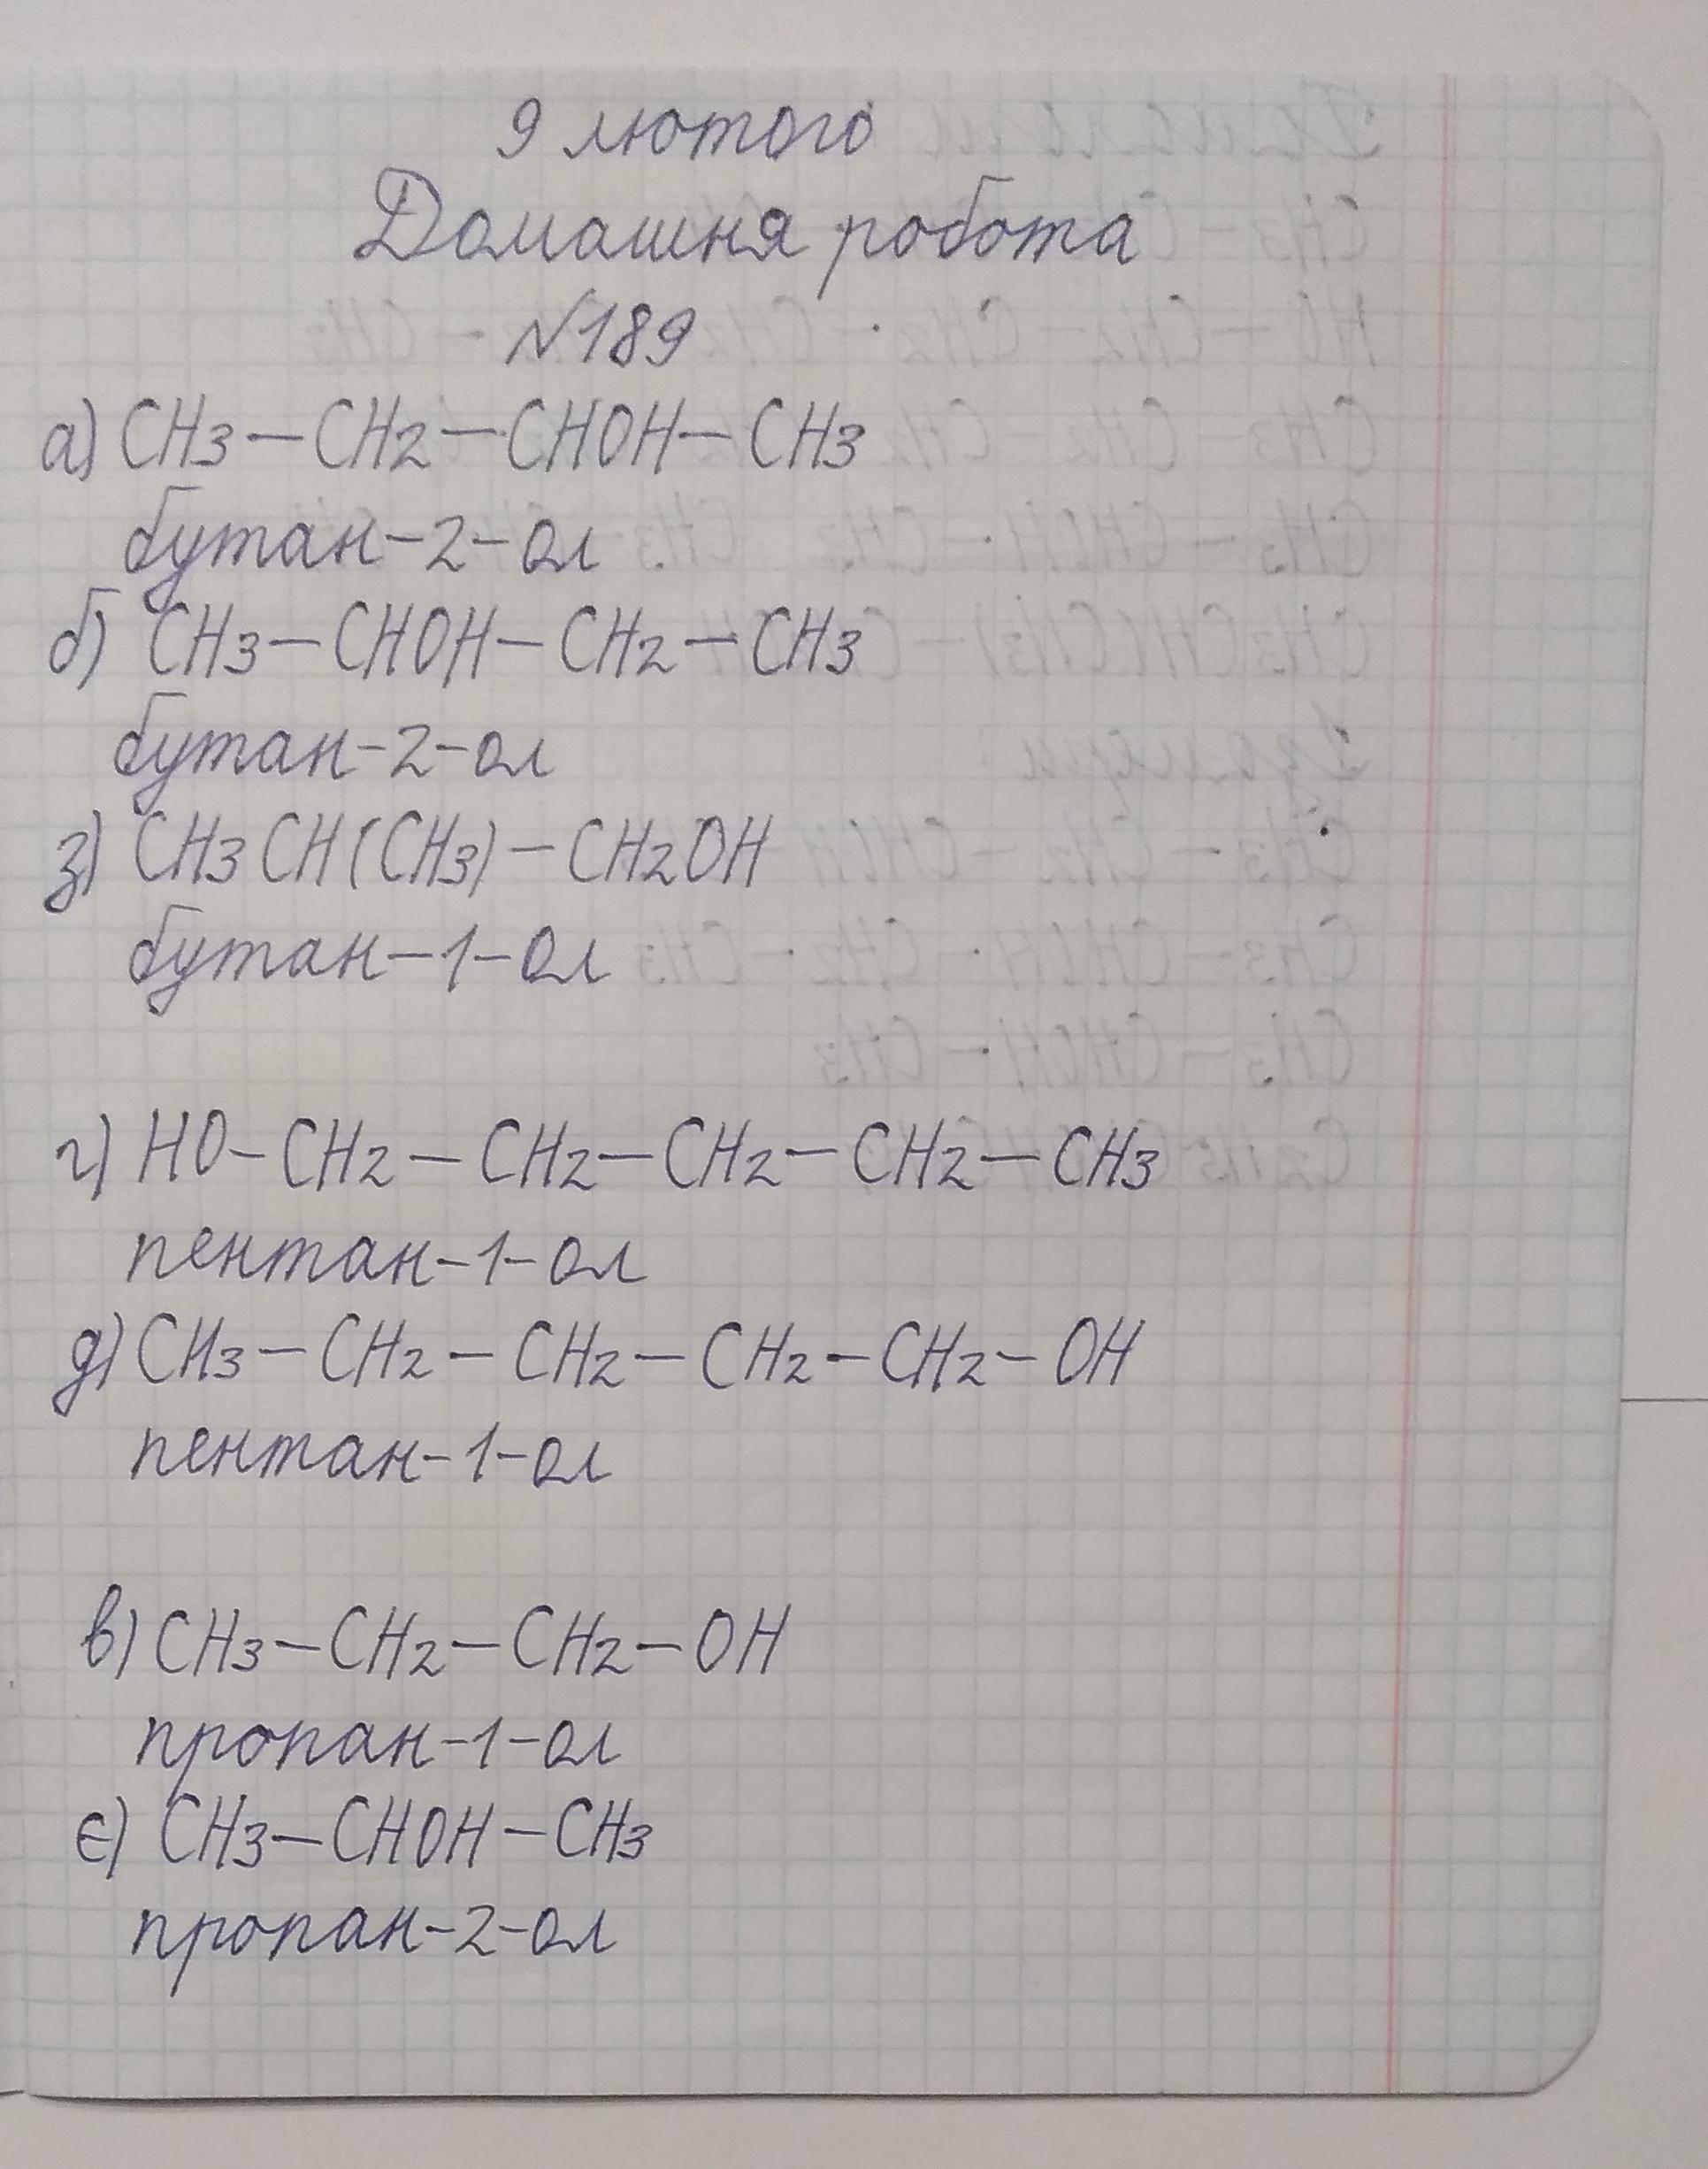 9 лютого
Домашня робота
№189
а) CH3-CH2-CHOH-CH3
бутан-2-ол
б) CH3-CHOH-CH2-CH3
бутан-2-ол
з) CH3CH(CH3)-CH2OH
бутан-1-ол
г) HO-CH2-CH2-CH2-CH2-CH3
пентан-1-ол
д) CH3-CH2-CH2-CH2-CH2-OH
пентан-1-ол
в) CH3-CH2-CH2-OH
пропан-1-ол
є) CH3-CHOH-CH3
пропан-2-ол